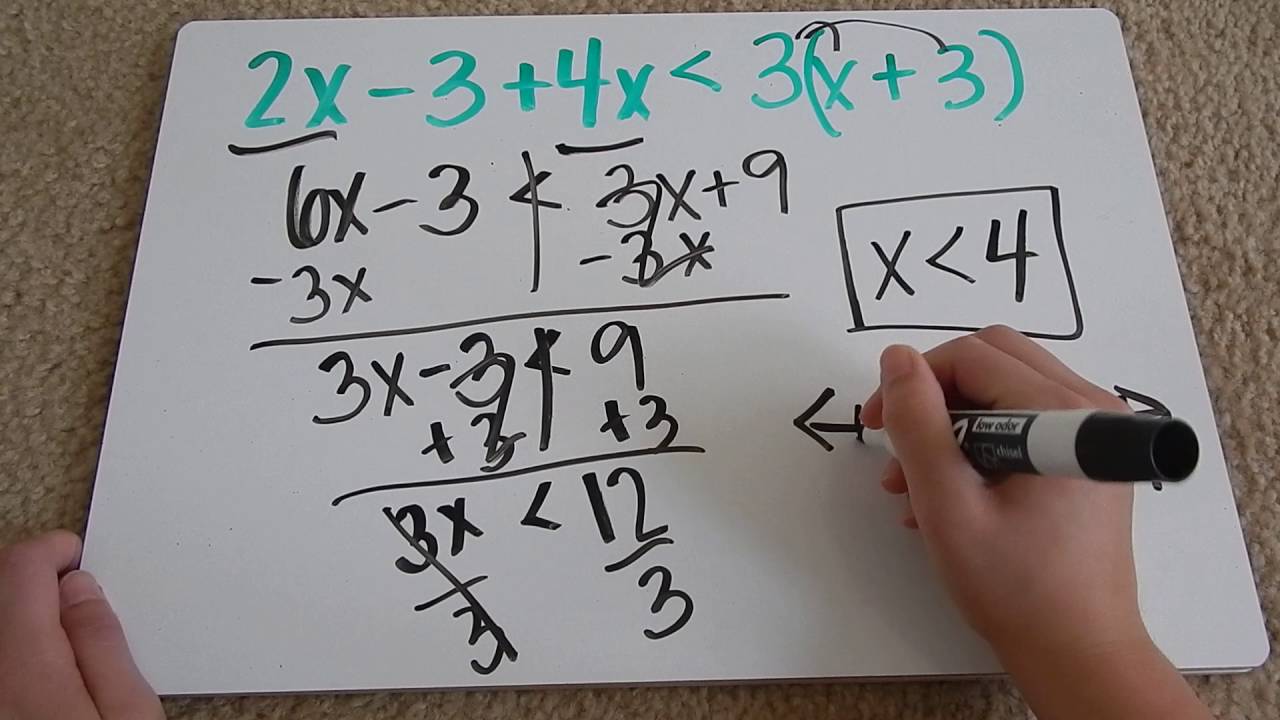 2x - 3 + 4x < 3(x + 3)
6x - 3 < 3x + 9
-3x - 3x
3x - 3 < 9
+ 3 + 3
3x < 12
3 3
x < 4
low odor
chisel